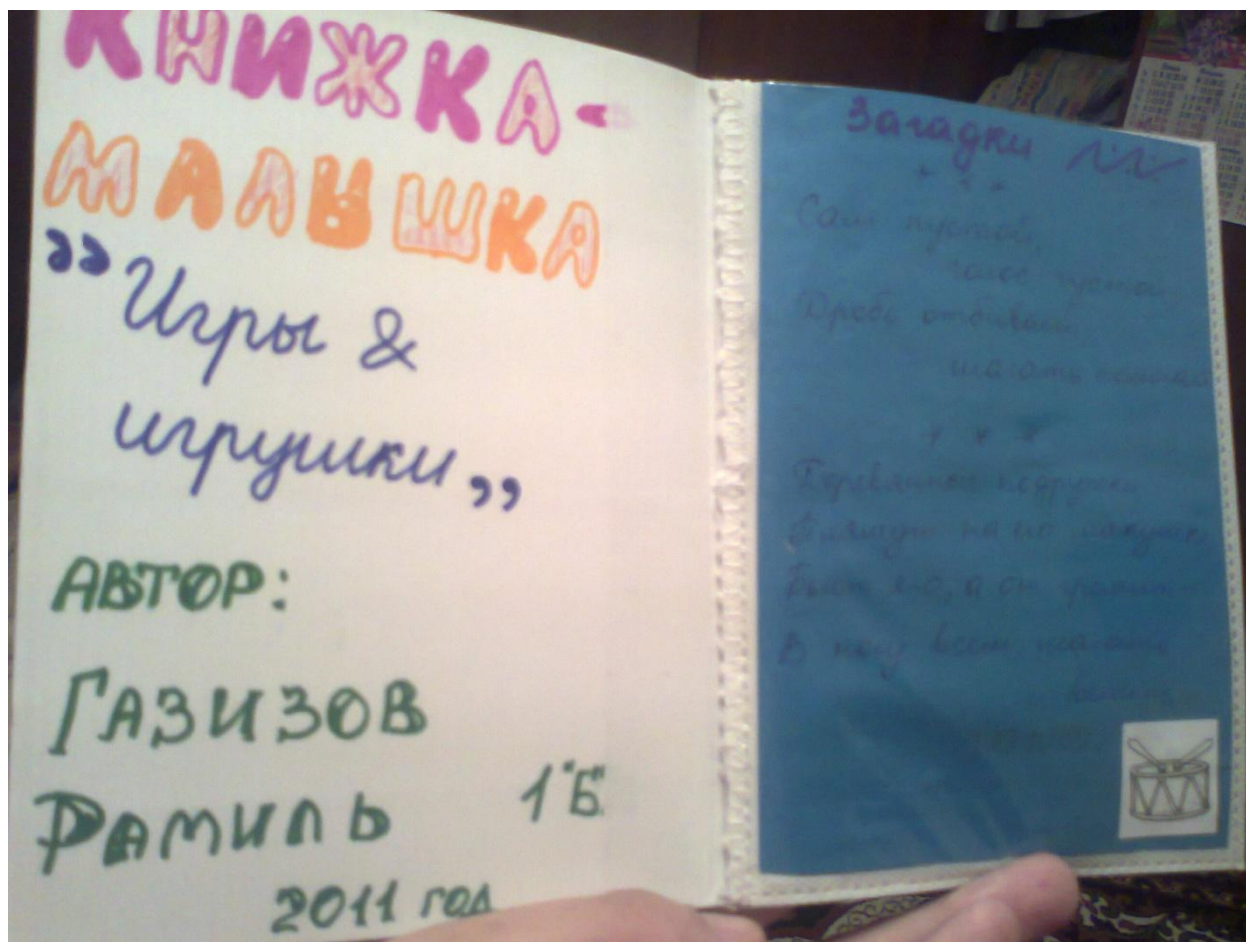 КНИЖКА-
МАЛЫШКА
„Игры &
игрушки„
АВТОР:
ГАЗИЗОВ
РАМИЛЬ 1"Б"
2011 год
Загадки
* * *
Сам пустой,
голос густой,
Дробь отбивает,
шагать помогает
* * *
Деревянные подружки
Пляшут на его макушке,
Бьют его, а он гремит -
В ногу всем шагать
велит.